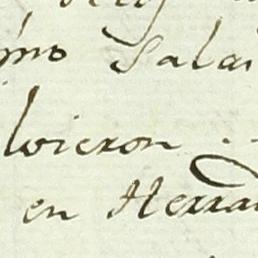 mo Sala
lvieron .
en Herra